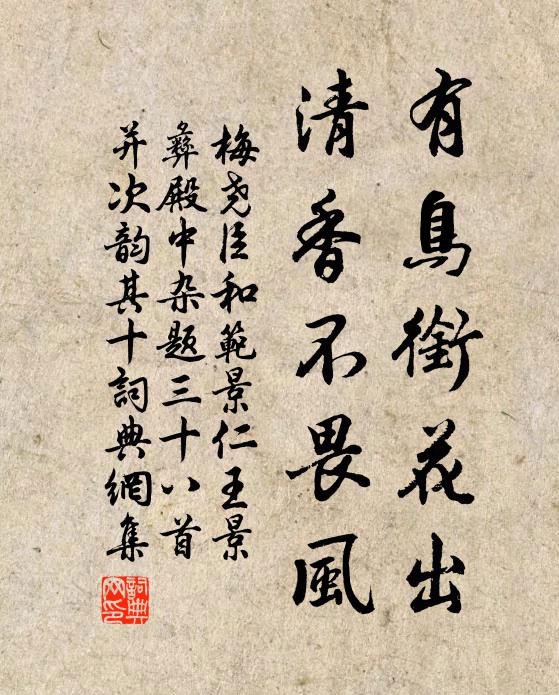 有鳥銜花出
清香不畏風
梅堯臣和範景仁王景
彝殿中杂題三十八首
并次韵其十詞典網集
詞典网印